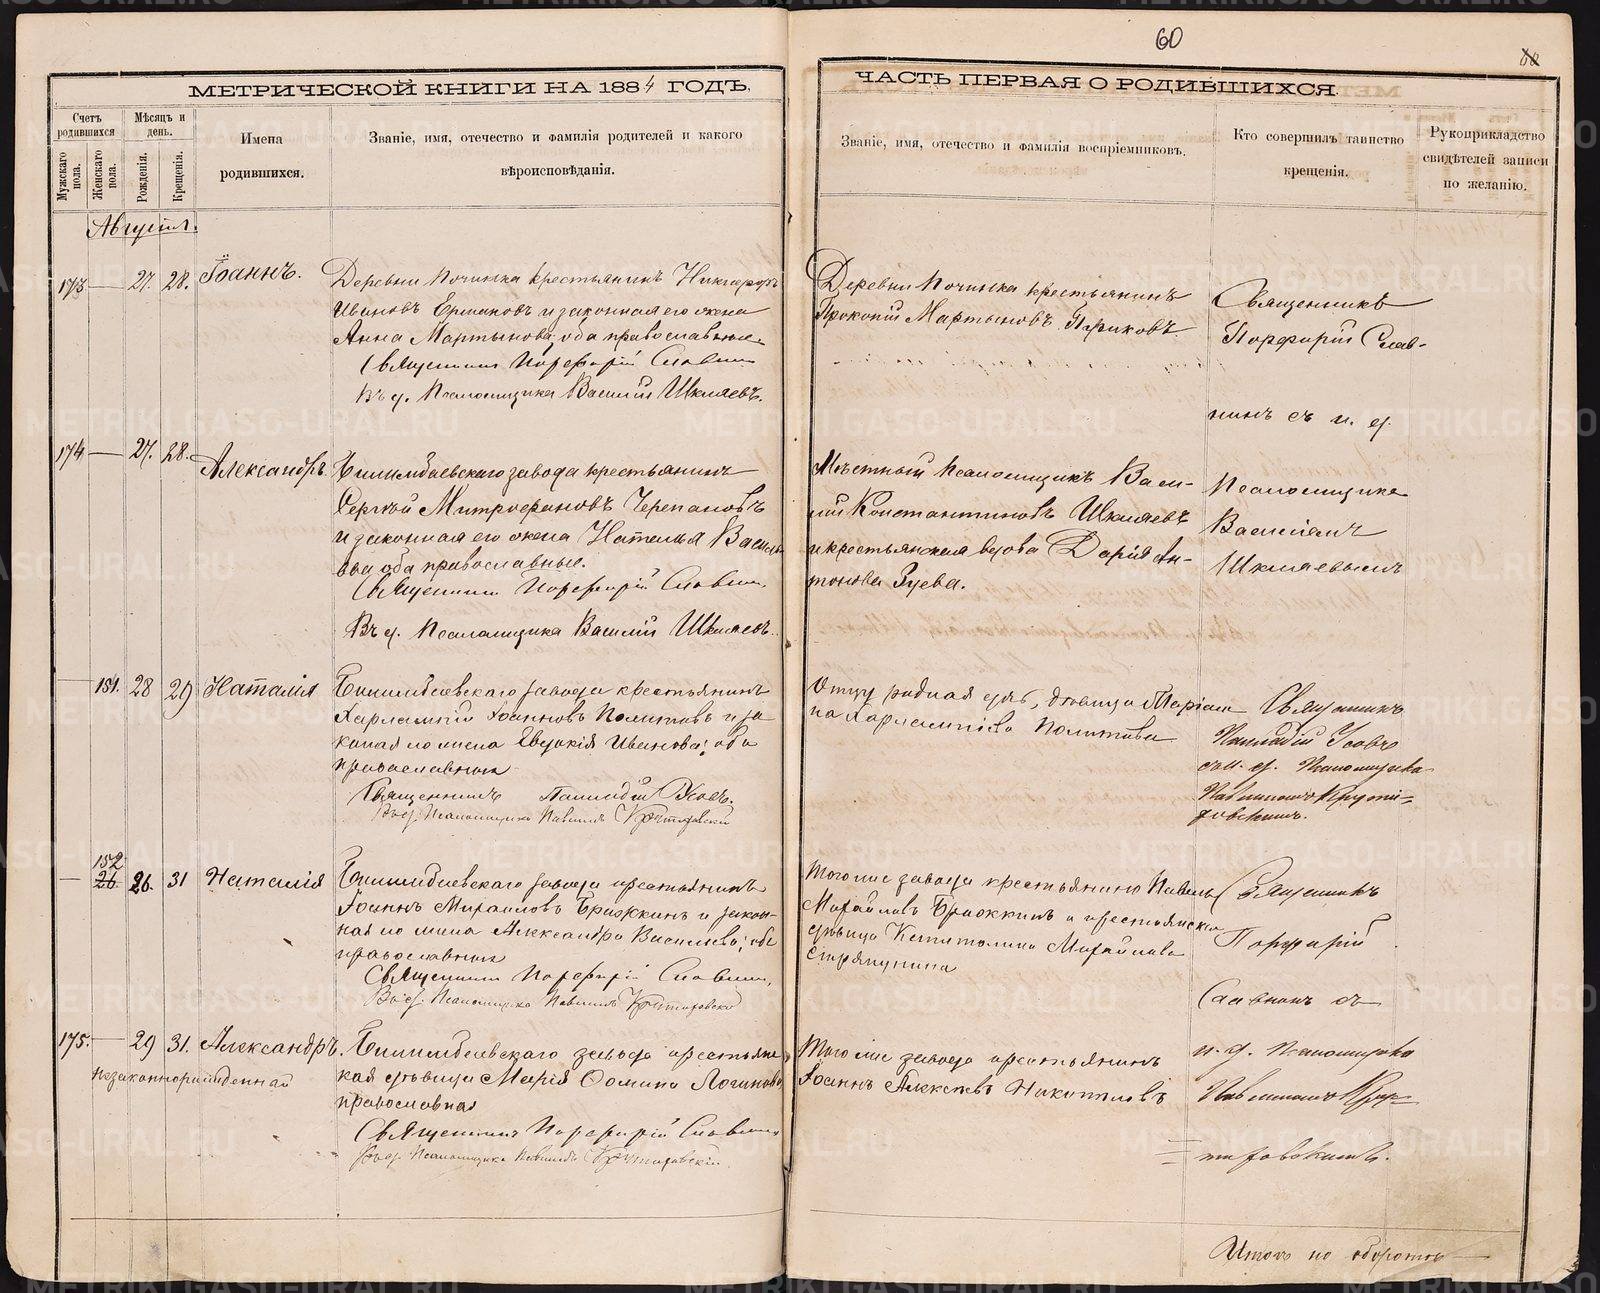 60
60
МЕТРИЧЕСКОЙ КНИГИ НА 1884 ГОДЪ,
ЧАСТЬ ПЕРВАЯ О РОДИВШИХСЯ.
Счетъ родившихся
Мужскаго пола.
Женскаго пола.
Мѣсяцъ и день.
Рожденія.
Крещенія.
Имена родившихся.
Званіе, имя, отечество и фамилія родителей и какого вѣроисповѣданія.
Званіе, имя, отечество и фамилія воспріемниковъ.
Кто совершилъ таинство крещенія.
Рукоприкладство свидѣтелей записи по желанію.
Августъ.
173 — 27. 28. Іоаннъ.
Деревни Починка крестьянинъ Никифоръ
Ивановъ Ермаковъ и законная его жена
Анна Мартынова, оба православные.
Священникъ Порфирій Славнинъ
Въ д. Псаломщика Василій Шкляевъ.
Деревни Починка крестьянинъ
Прокопій Мартыновъ
Священникъ
Порфирій Слав-
нинъ съ и. д.
174 — 27. 28. Александръ
Билимбаевскаго завода крестьянинъ
Сергѣй Митрофановъ Черепановъ
и законная его жена Наталья Василь
ева оба православные.
Священникъ Порфирій Славнинъ
Въ д. Псаломщика Василій Шкляевъ.
Мѣстный Псаломщикъ Васи-
лій Константиновъ Шкляевъ
и крестьянская вдова Дарія Ан-
тонова Гуева.
Псаломщика
Василіемъ
Шкляевымъ
— 151. 28 29 Наталія
Билимбаевскаго завода крестьянинъ
Харлампій Іоанновъ Политовъ и за
конная его жена Евдокія Иванова; оба
православныя
Священникъ Палладій Усовъ.
Въ д. Псаломщика Павлинъ
Отцу родная дочь, дѣвица Марія
на Харлампіева Политова
Священникъ
Палладій Усовъ
съ и. д. Псаломщика
Павлиномъ
152
26
— 26. 31 Наталія
Билимбаевскаго завода крестьянинъ
Іоаннъ Михаиловъ Бражкинъ и закон-
ная его жена Александра Васильева; оба
православныя
Священникъ Порфирій Славнинъ,
Въ д. Псаломщика Павлинъ
Того же завода крестьянинъ Павелъ
Михайловъ Бражкинъ и крестьянская
дѣвица Капитолина Михайлова
Стряпунина
Священникъ
Порфирій
Славнинъ съ
175. — 29 31. Александръ.
незаконнорожденный
Билимбаевскаго завода крестьянс
кая дѣвица Марія Ѳомина Логинова
православная
Священникъ Порфирій Славнинъ
Въ д. Псаломщика Павлинъ
Того же завода крестьянинъ
Іоаннъ Алексѣевъ
и. д. Псаломщика
Павлиномъ
Итогъ на оборотѣ
METRIKI.GASO-URAL.RU